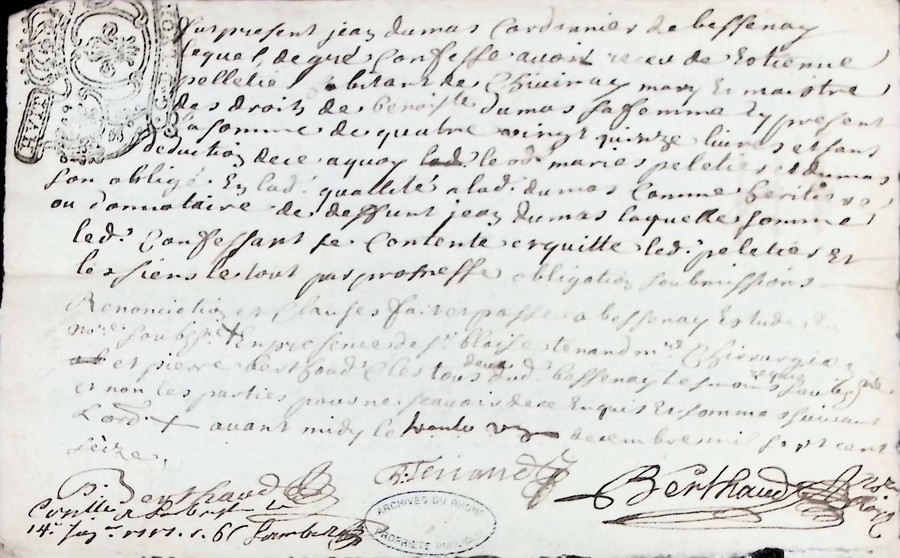 Fut present jean dumas Cordonnier de bessenay
lequel de gré Confesse avoir receu de Estienne
pelletié abitant de Chivinay mary Et maistre
des droits de benoiste dumas sa femme Cy present
la somme de quatre vingt quinze livres Et sans
deduction de ce a quoy led. mariés peletier et dumas
son obligé En lad. quallité a lad. dumas Comme heritier
ou donnataire de deffunt jean dumas laquelle somme
led. Confessant se Contente Et quitte led. peletier Et
les siens le tout par promesse obligation soubmissions
Renonciation et Clauses fait et passé a bessenay Estude du
no.re soubz.né En presence de s.r blaise tenand m.re Chirurgien
et pierre berthoud Clerc tous deux dud. bessenay tesmoins soubz.nés
et non les parties pour ne sçavoir de ce Enquis Et sommés suivant
L'ord. avant midy le trente un decembre mil sept cent
seize
P. Berthaud
B. Tenand
Berthaud
Conttlé a
14.e 1717
HUIT
ARCHIVES DU RHONE
PROPRIETE PUBLIQUE